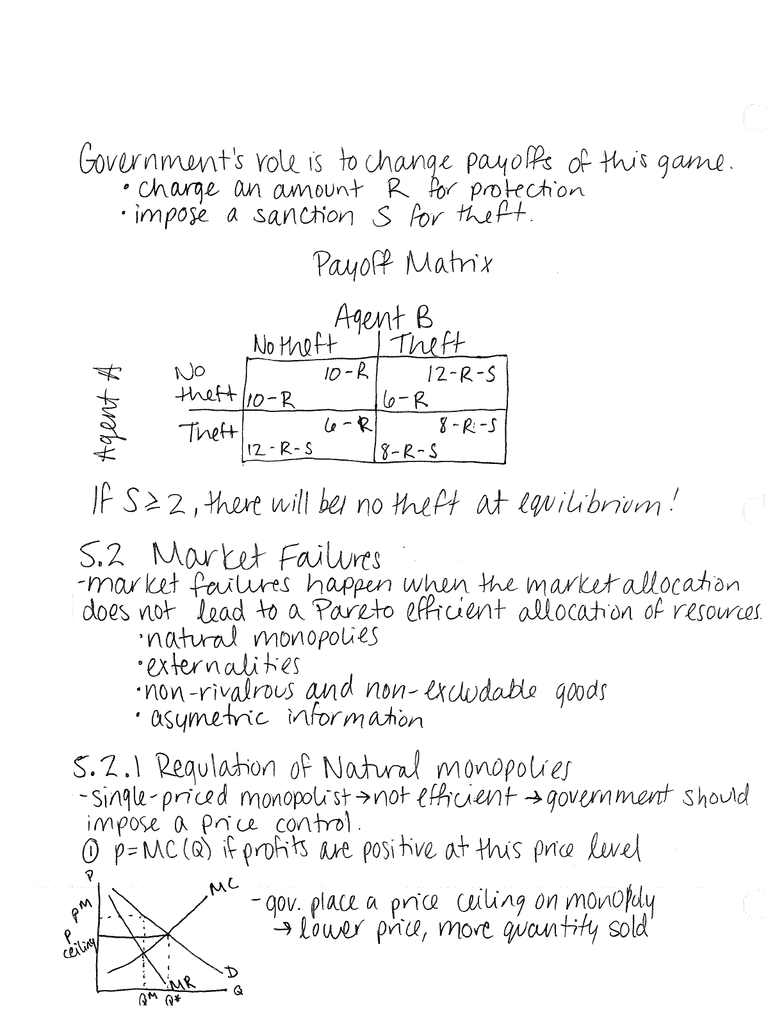 Government's role is to change payoffs of this game.
• charge an amount R for protection
• impose a sanction S for theft.
Payoff Matrix
Agent B
No theft Theft
Agent A
No theft 10-R 12-R-S
10-R 6-R
Theft 6-R 8-R-S
12-R-S 8-R-S
If S≥2, there will be no theft at equilibrium!
5.2 Market Failures
-market failures happen when the market allocation
does not lead to a Pareto efficient allocation of resources.
•natural monopolies
•externalities
•non-rivalrous and non-excludable goods
• asymetric information
5.2.1 Regulation of Natural monopolies
-single-priced monopolist→not efficient→government should
impose a price control.
① p=MC(Q) if profits are positive at this price level
P
MC
pM
P ceiling
D
MR
QM Q* Q
-gov. place a price ceiling on monopoly
→ lower price, more quantity sold